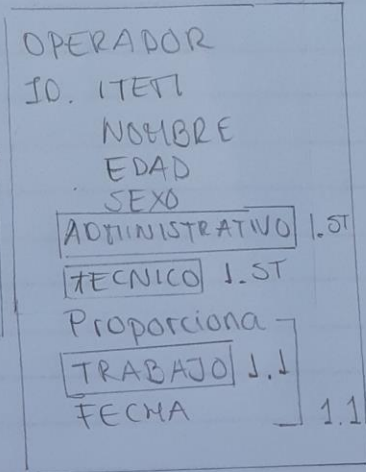 OPERADOR
ID. ITEM
NOMBRE
EDAD
SEXO
ADMINISTRATIVO 1.ST
TECNICO 1.ST
Proporciona
TRABAJO 1.1
FECHA 1.1